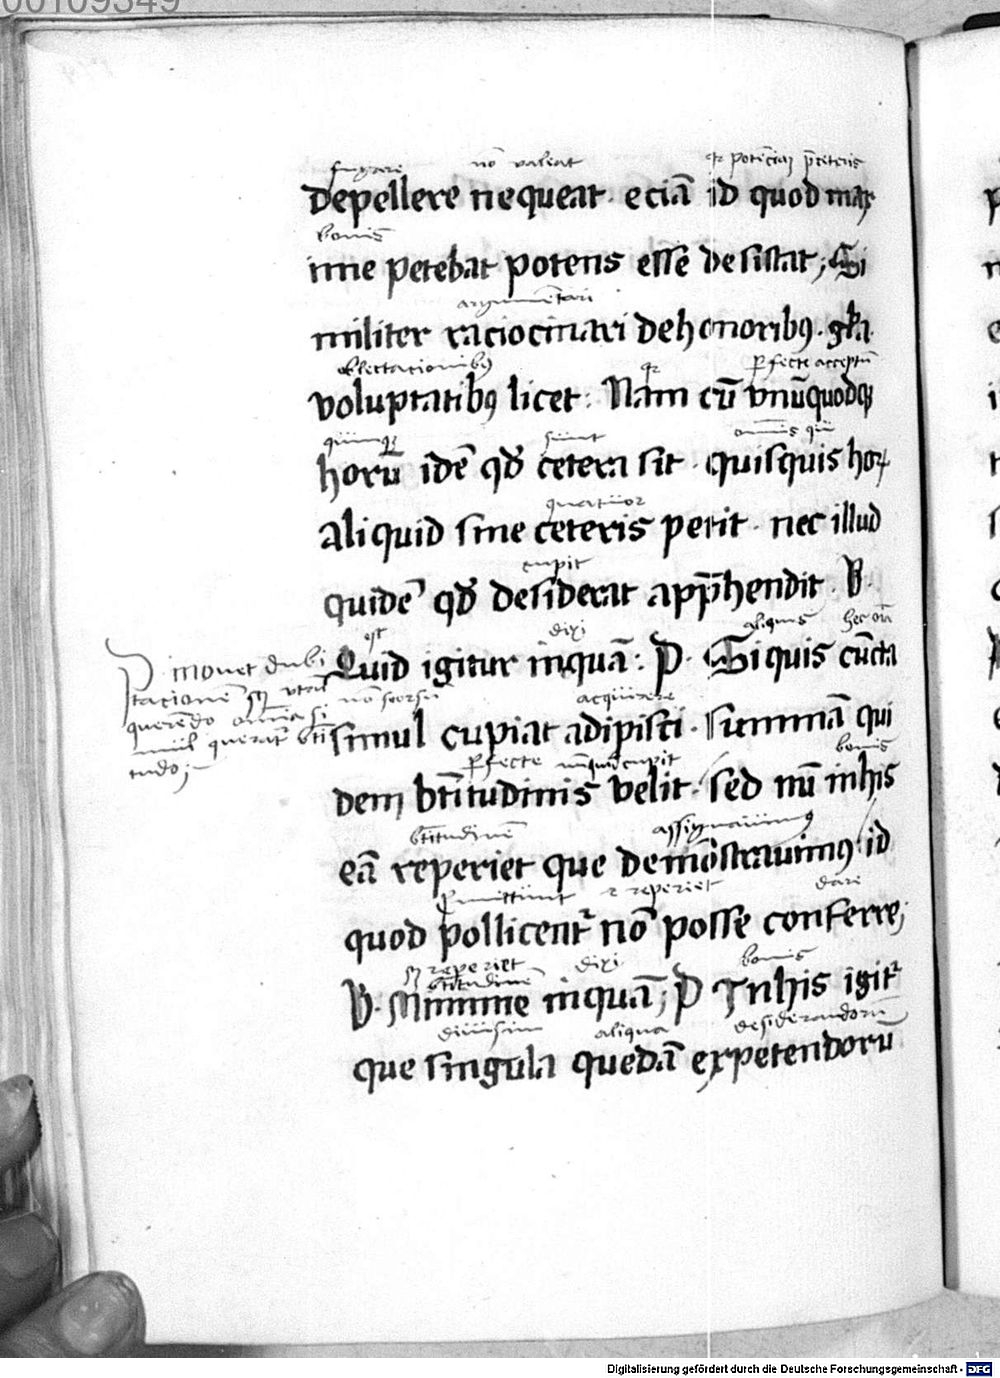 00109349
fugari non valeat
depellere nequeat. eciā id quod max
bonis
ime petebat potens esse desistat; Si
argumētari
militer raciocinari de honoribꝰ. gl̄ia
oblectacionibꝰ pfecte acceptū
voluptatibꝰ licet: Nam cū vnūquodqꝫ
sunt
horū idē qd̄ cetera sit. quisquis hoꝝ
quatuor
aliquid sine ceteris petit. nec illud
cupit
quidē qd̄ desiderat app̄hendit. B.
est dixi aliquis
Quid igitur inquā: P. Siquis cūcta
non seorsū acquirere
simul cupiat adipisci. summā qui
bonis
dem bt̄itudinis velit. sed nū in his
bt̄itudinē assignauimꝰ
eā reperiet que demōstrauimꝰ id
pmittunt reperiet dare
quod pollicent̄ nō posse conferre;
reperiet bt̄itudinē dixi bonis
B. Minime inquā; P In his igit̄
diuisim aliqua desiderandorū
que singula quedā expetendorū
P. mouet dubi
tacionē
querēdo omnia si
mul querat̄ bt̄i
tudo;
Digitalisierung gefördert durch die Deutsche Forschungsgemeinschaft - DFG